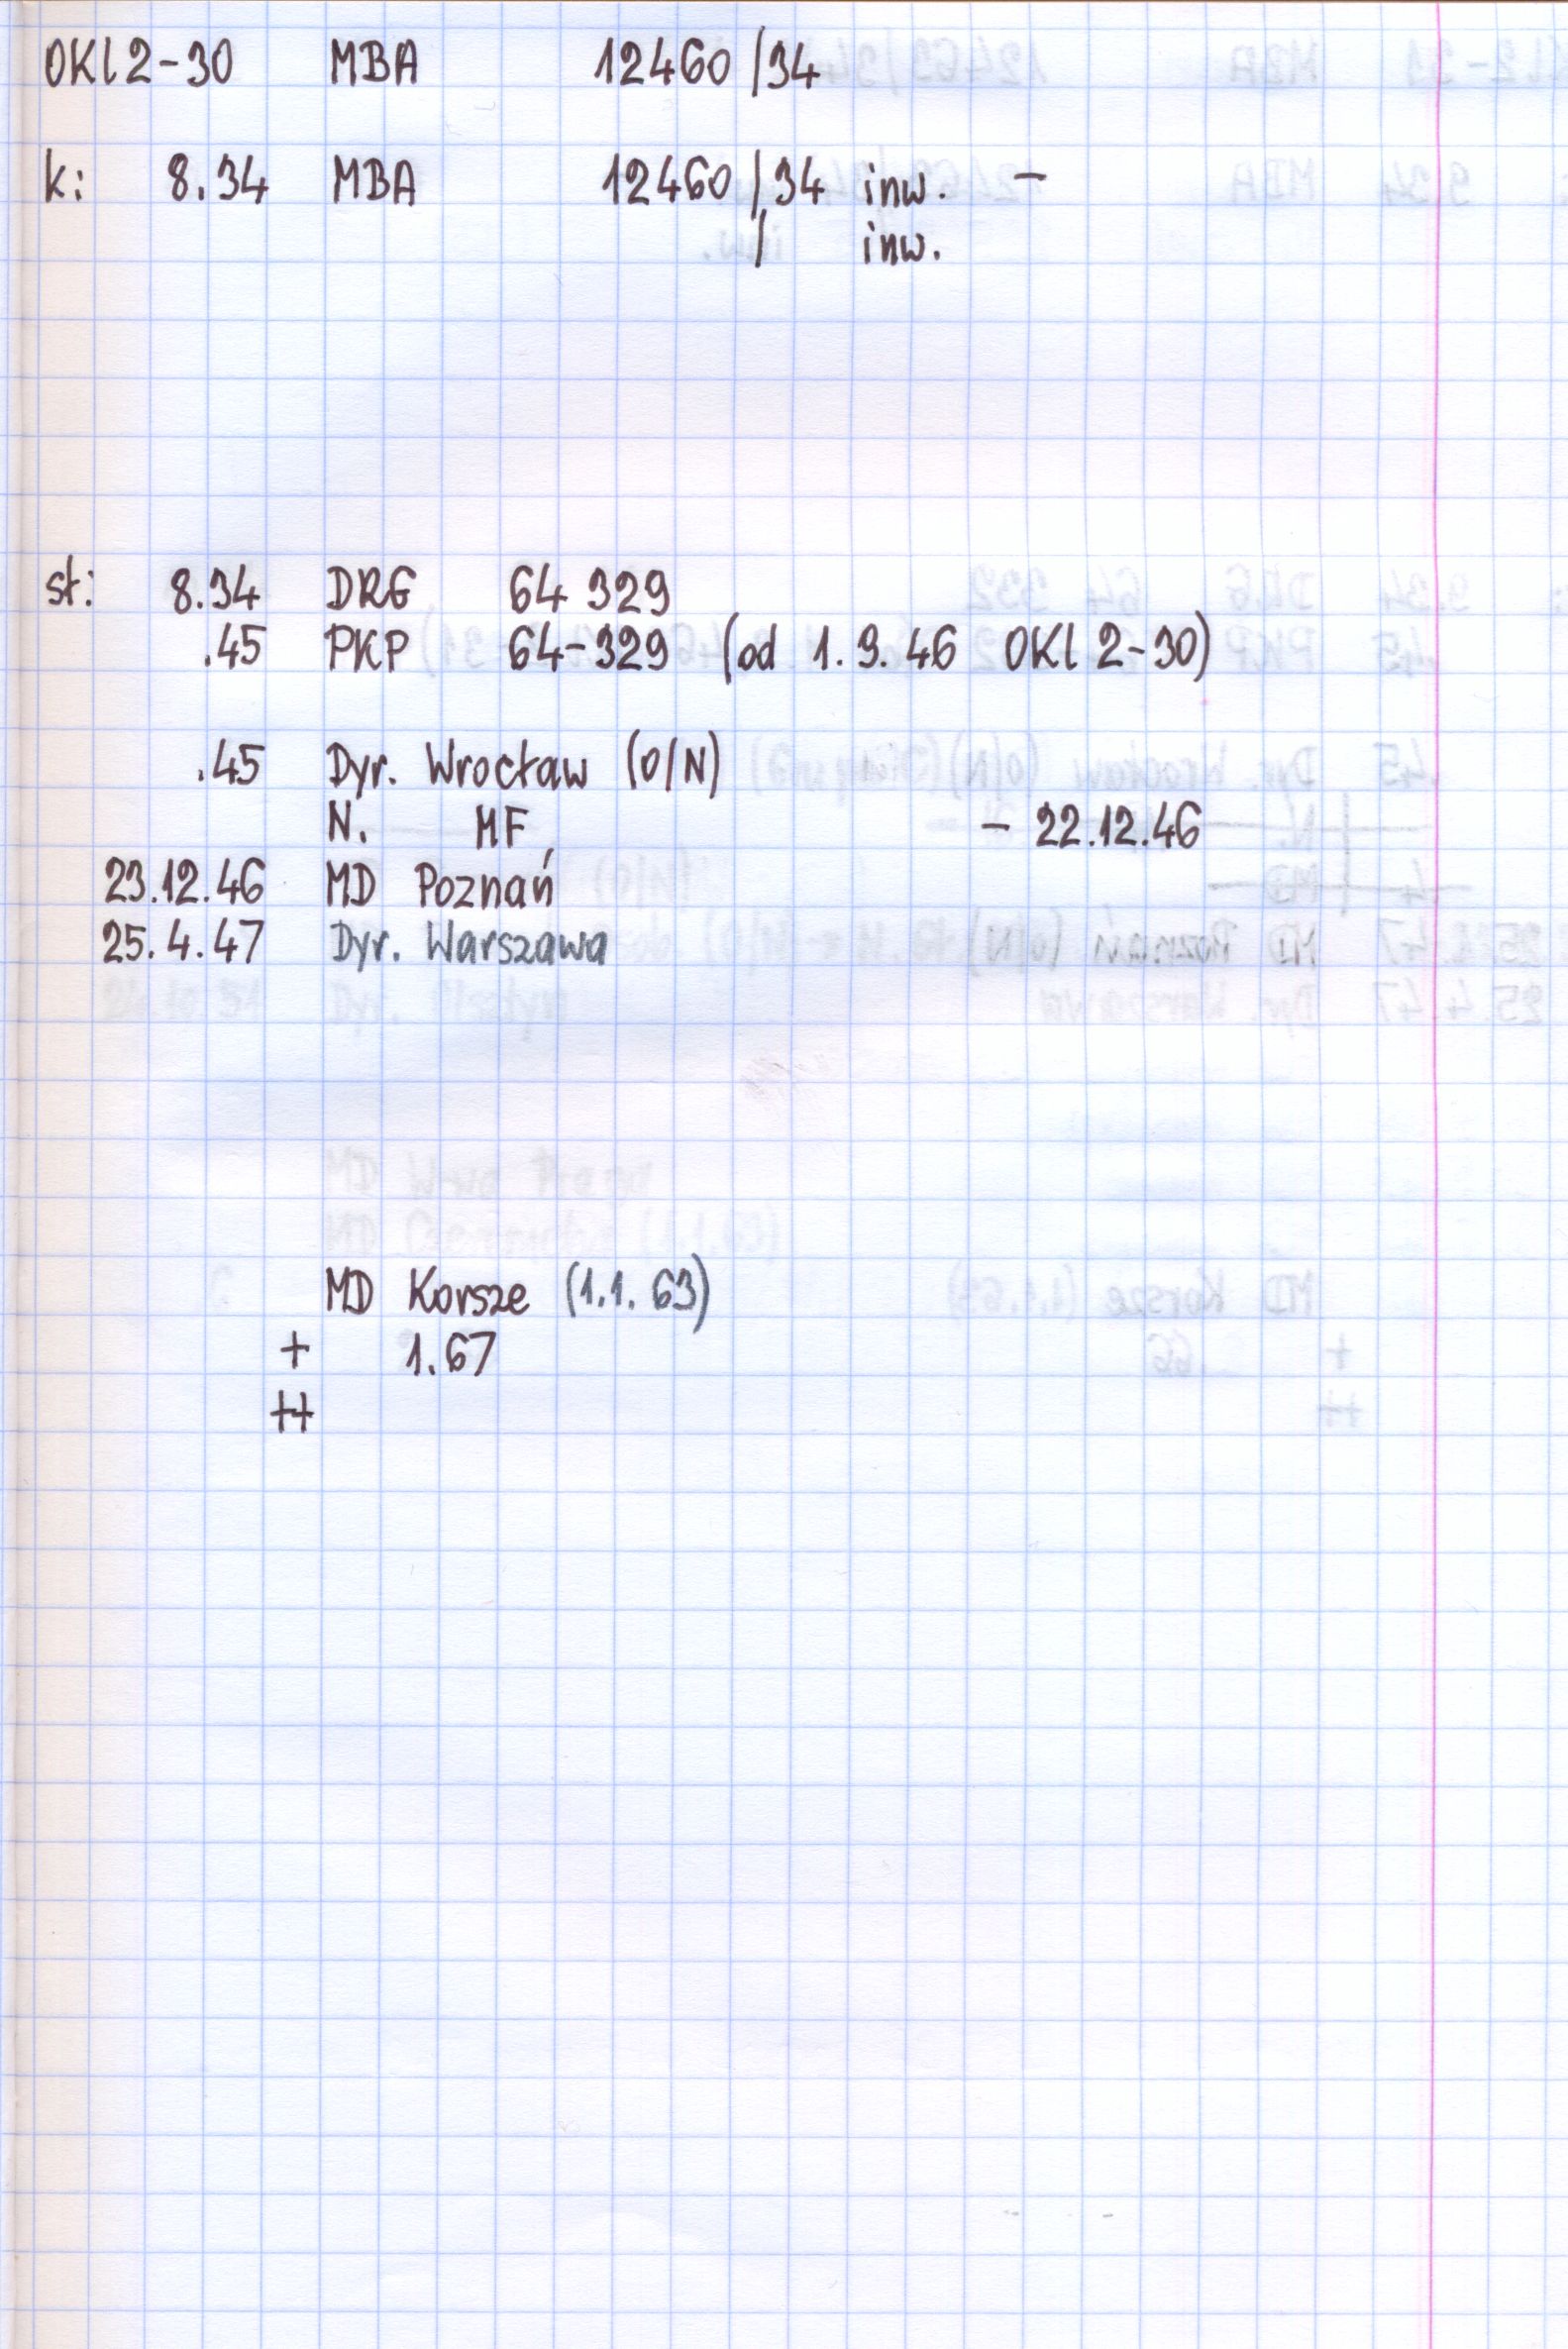 OKl 2-30 MBA 12460/34
k: 8.34 MBA 12460/34 inw. -
/ inw.
st: 8.34 DRG 64 329
.45 PKP 64-329 (od 1.9.46 OKl 2-30)
.45 Dyr. Wrocław (O/N)
N. MF - 22.12.46
23.12.46 MD Poznań
25.4.47 Dyr. Warszawa
24.10.51 Dyr. Olsztyn
MD W-wa Praga
MD (1.1.63)
MD Korsze (1.1.63)
+ 1.67
++